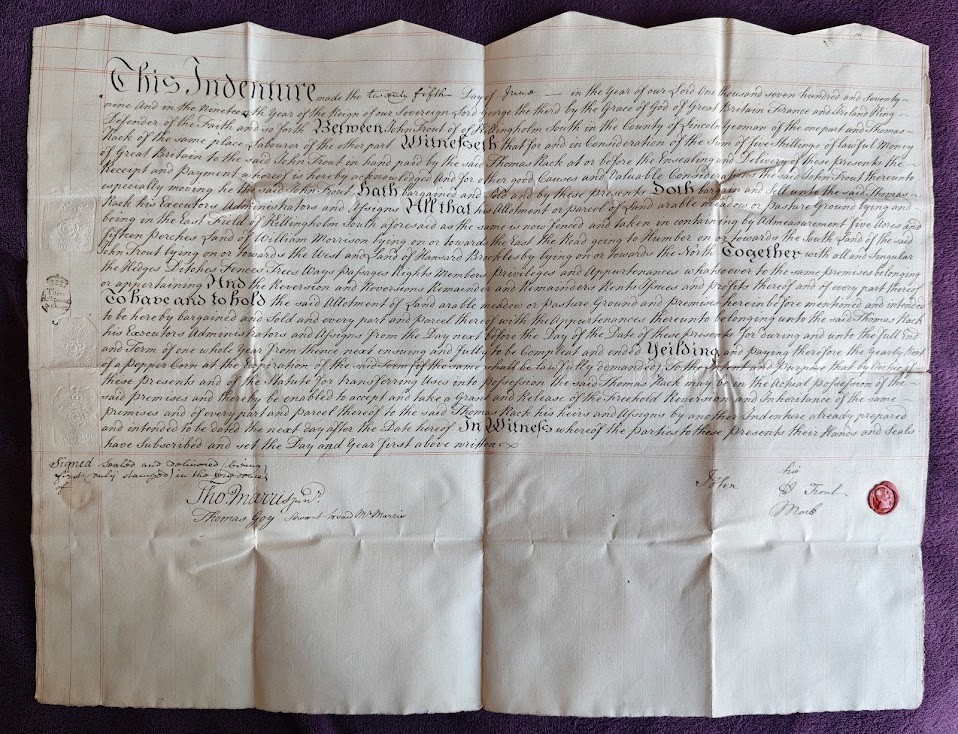 This Indenture made the twenty fifth Day of June in the Year of our Lord One thousand seven hundred and seventy
nine And in the Nineteenth Year of the Reign of our Sovereign Lord George the third by the Grace of God of Great Britain France and Ireland King
Defender of the Faith and so forth Between John Trout of of Killingholm South in the County of Lincoln Yeoman of the one part and Thomas
Rack of the same place Labourer of the other part Witnesseth that for and in Consideration of the Sum of five Shillings of lawful Money
of Great Britain to the said John Trout in hand paid by the said Thomas Rack at or before the Ensealing and Delivery of these presents the
Receipt and Payment whereof is hereby acknowledged And for other good Causes and valuable Considerations the said John Trout thereunto
especially moving he the said John Trout Hath bargained and sold and by these presents Doth bargain and Sell unto the said Thomas
Rack his Executors Administrators and Assigns All that his Allotment or parcel of Land arable meadow or Pasture Ground lying and
being in the East Field of Killingholm South aforesaid as the same is now fenced and taken in containing by Admeasurement five Acres and
fifteen perches Land of William Morrison lying on or towards the East the Road going to Humber on or towards the South Land of the said
John Trout lying on or towards the West and Land of Hansard Breckleby lying on or towards the North Together with all and Singular
the Hedges Ditches Fences Trees Ways passages Rights Members privileges and Appurtenances whatsoever to the same premises belonging
or appertaining And the Reversion and Reversions Remainder and Remainders Rents Issues and profits thereof and of every part thereof
To have and to hold the said Allotment of Land arable meadow or Pasture Ground and premises hereinbefore mentioned and intended
to be hereby bargained and Sold and every part and parcel thereof with the Appurtenances thereunto belonging unto the said Thomas Rack
his Executors Administrators and Assigns from the Day next before the Day of the Date of these presents for during and unto the full End
and Term of one whole Year from thence next ensuing and fully to be Compleat and ended Yeilding and paying therefore the Yearly Rent
of a pepper Corn at the Expiration of the said Term (if the same shall be lawfully demanded) To the Intent and Purpose that by Virtue of
these presents and of the Statute for transferring Uses into possession the said Thomas Rack may be in the Actual possession of the
said premises and thereby be enabled to accept and take a Grant and Release of the Freehold Reversion and Inheritance of the same
premises and of every part and parcel thereof to the said Thomas Rack his heirs and Assigns by another Indenture already prepared
and intended to be Dated the next day after the Date hereof In Witness whereof the parties to these presents their Hands and Seals
have Subscribed and set the Day and Year first above written
Signed sealed and delivered (being
first duly stamped) in the presence
of
Tho Marris Junr.
Thomas Goy Servant to said Mr Marris
his
John Trout
Mark